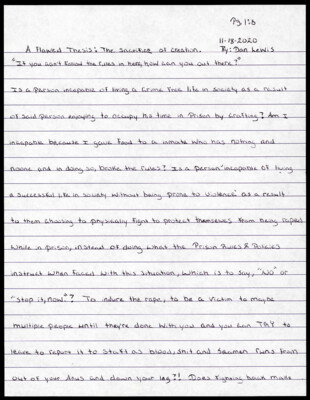 Pg 1:8
11-18-2020
A Flawed Thesis: The Sacrificing of creation. By: Dan Lewis
"If you can't follow the rules in here, how can you out there?"
Is a Person incapable of living a Crime Free life in society as a result
of said Person enjoying to occupy his time in Prison by Crafting? Am I
incapable because I gave food to a inmate who has nothing and
noone and in doing so, broke the rules? Is a person "incapable of living
a successful life in society without being prone to violence" as a result
to them choosing to physically fight to protect themselves from being raped
while in prison, instead of doing what the Prison Rules & Policies
instruct when faced with this situation, which is to say, "No" or
"Stop it, now."? To indure the rape, to be a victim to maybe
multiple people until they're done with you and you can TRY to
leave to report it to staff as blood, shit and seamen runs from
out of your Anus and down your leg?! Does fighting back make